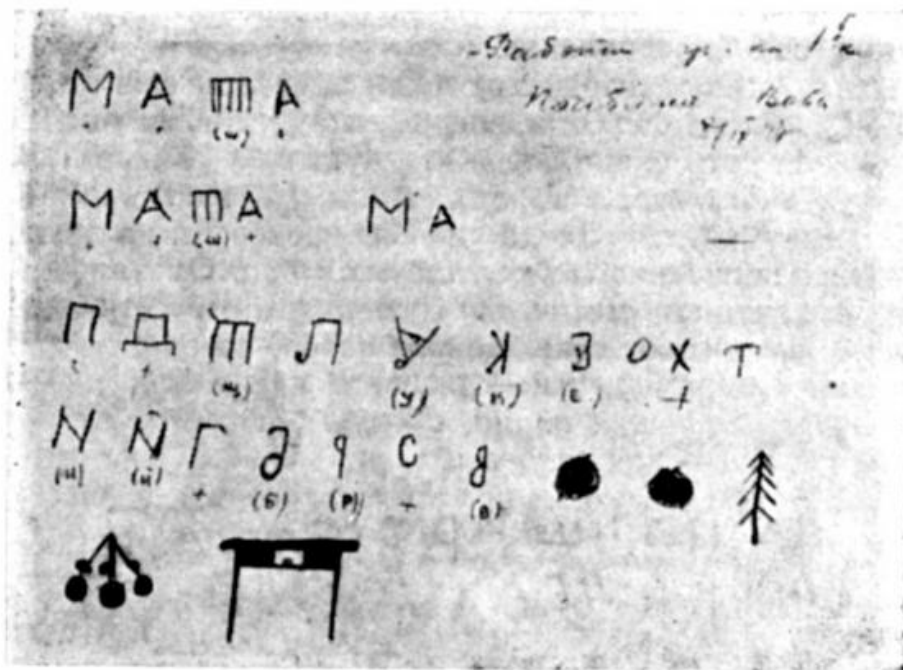 Вова
М А Ш А
+ + (ш) +
М А Ш А М А
+ + (ш) +
П Д Щ Л У К Е О Х Т
+ (щ) (у) (к) (е) +
И Й Г Б Р С В
(и) (й) + (б) (р) + (в)